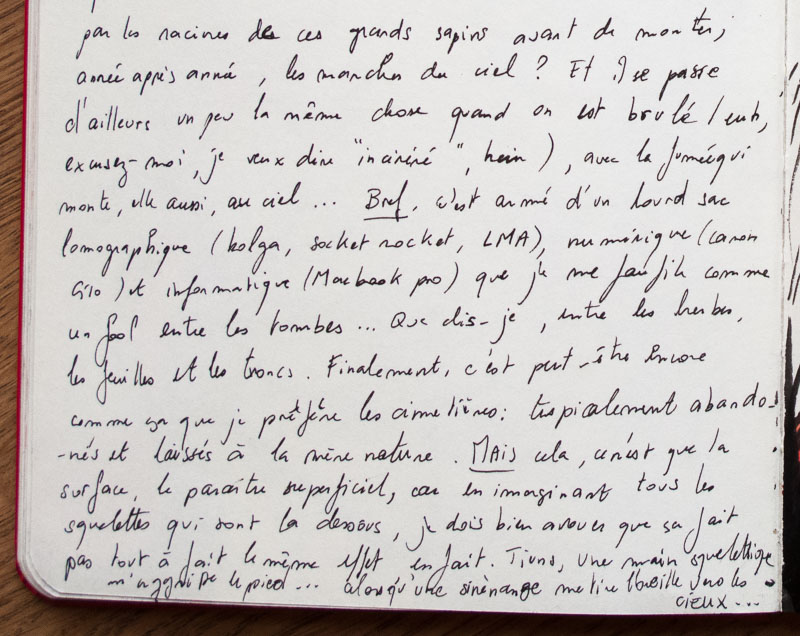 par les racines de ces grands sapins avant de monter,
année après année, les marches du ciel ? Et il se passe
d'ailleurs un peu la même chose quand on est brulé (euh,
excusez-moi, je veux dire "incinéré", hein), avec la fumée qui
monte, elle aussi, au ciel ... Bref, c'est armé d'un lourd sac
lomographique (holga, socket rocket, LMA), numérique (canon
G10) et informatique (Macbook pro) que je me faufile comme
un fool entre les tombes ... Que dis-je, entre les herbes,
les feuilles et les troncs. Finalement, c'est peut-être encore
comme ça que je préfère les cimetières : tropicalement abando-
-nés et laissés à la mère nature. MAIS cela, ce n'est que la
surface, le paraître superficiel, car en imaginant tous les
squelettes qui sont là dessous, je dois bien avouer que sa fait
pas tout à fait le même effet en fait. Tiens, une main squelettique
m'aggrippe le pied ... alors qu'une sirènange me tire l'oreille vers les
cieux ...